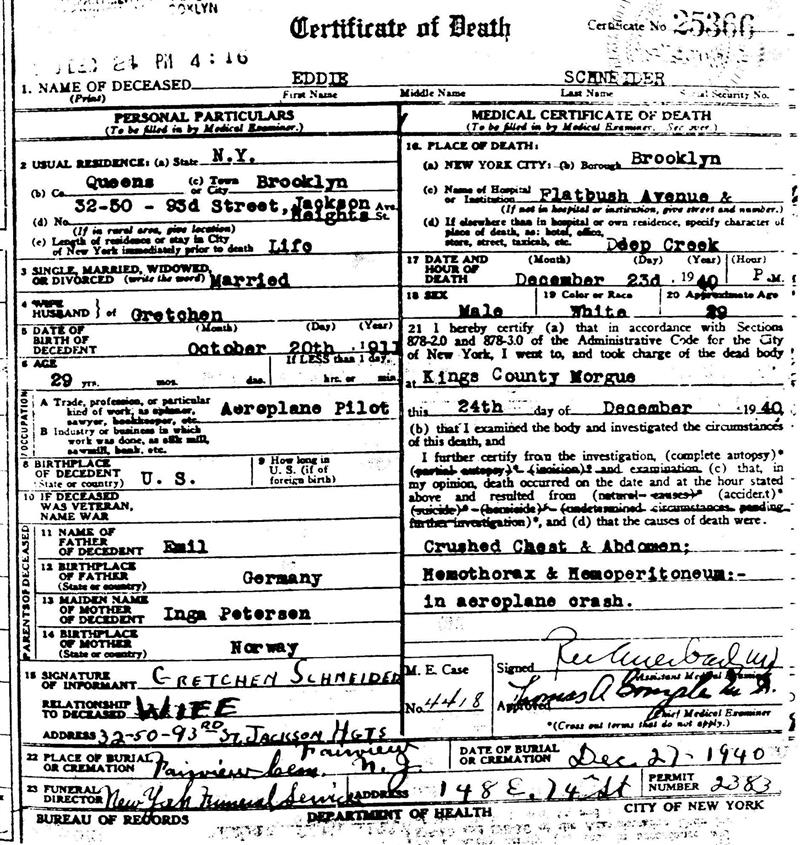 OKLYN
Certificate of Death
Certificate No. 25366
DEC 24 PM 4:16
1. NAME OF DECEASED EDDIE SCHNEIDER
(Print) First Name Middle Name Last Name Social Security No.
PERSONAL PARTICULARS
(To be filled in by Medical Examiner.)
2 USUAL RESIDENCE: (a) State N.Y.
(b) Co. Queens (c) Town or City Brooklyn
(d) No. 32-50 - 93d Street, Jackson Heights Ave. St.
(If in rural area, give location)
(e) Length of residence or stay in City
of New York immediately prior to death Life
3 SINGLE, MARRIED, WIDOWED,
OR DIVORCED (write the word) Married
4 WIFE
HUSBAND } of Gretchen
5 DATE OF (Month) (Day) (Year)
BIRTH OF
DECEDENT October 20th 1911
6 AGE If LESS than 1 day,
29 yrs. mos. das. hrs. or min.
OCCUPATION
A Trade, profession, or particular
kind of work, as spinner,
sawyer, bookkeeper, etc. Aeroplane Pilot
B Industry or business in which
work was done, as silk mill,
sawmill, bank, etc.
8 BIRTHPLACE
OF DECEDENT
(State or country) U. S.
9 How long in
U. S. (if of
foreign birth)
10 IF DECEASED
WAS VETERAN,
NAME WAR
PARENTS OF DECEASED
11 NAME OF
FATHER
OF DECEDENT Emil
12 BIRTHPLACE
OF FATHER
(State or country) Germany
13 MAIDEN NAME
OF MOTHER
OF DECEDENT Inga Petersen
14 BIRTHPLACE
OF MOTHER
(State or country) Norway
15 SIGNATURE
OF INFORMANT GRETCHEN SCHNEIDER
RELATIONSHIP
TO DECEASED WIFE
ADDRESS 32-50-93RD ST. JACKSON HGTS
MEDICAL CERTIFICATE OF DEATH
(To be filled in by Medical Examiner. See over.)
16. PLACE OF DEATH:
(a) NEW YORK CITY: (b) Borough Brooklyn
(c) Name of Hospital
or Institution Flatbush Avenue &
(If not in hospital or institution, give street and number.)
(d) If elsewhere than in hospital or own residence, specify character of
place of death, as: hotel, office,
store, street, taxicab, etc. Deep Creek
17 DATE AND (Month) (Day) (Year) (Hour)
HOUR OF
DEATH December 23d 1940 P.M.
18 SEX 19 Color or Race 20 Approximate Age
Male White 29
21 I hereby certify (a) that in accordance with Sections
878-2.0 and 878-3.0 of the Administrative Code for the City
of New York, I went to, and took charge of the dead body
at Kings County Morgue
this 24th day of December 1940
(b) that I examined the body and investigated the circumstances
of this death, and
I further certify from the investigation, (complete autopsy)*
(partial autopsy)* (incision)* and examination (c) that, in
my opinion, death occurred on the date and at the hour stated
above and resulted from (natural causes)* (accident)*
(suicide)* (homicide)* (undetermined circumstances pending
further investigation)*, and (d) that the causes of death were.
Crushed Chest & Abdomen;
Hemothorax & Hemoperitoneum:-
in aeroplane crash.
M. E. Case
No. 4418
Signed
Assistant Medical Examiner
Approved Thomas A
Chief Medical Examiner
*(Cross out terms that do not apply.)
22 PLACE OF BURIAL
OR CREMATION Fairview Cem. Fairview N. J.
DATE OF BURIAL
OR CREMATION Dec. 27-1940
23 FUNERAL
DIRECTOR New York Funeral Service
ADDRESS 148 E. 74th St
PERMIT
NUMBER 2383
BUREAU OF RECORDS DEPARTMENT OF HEALTH CITY OF NEW YORK